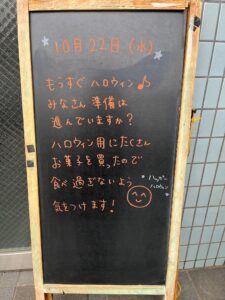 10月22日(水)
もうすぐ ハロウィン♪
みなさん 準備は
進んでいますか？
ハロウィン用にたくさん
お菓子を買ったので
食べ過ぎないよう
気をつけます！
ハッピー
ハロウィン